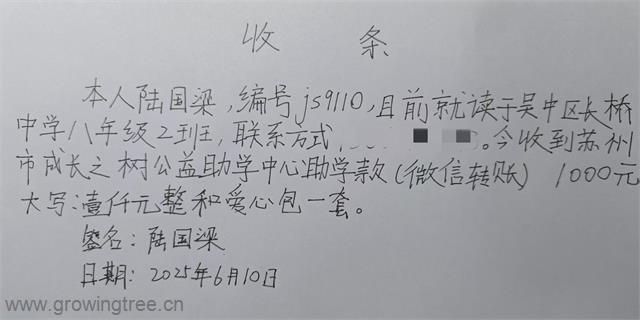 收 条
本人陆国梁，编号js9110，目前就读于吴中区长桥
中学八年级2班，联系方式，。今收到苏州
市成长之树公益助学中心助学款（微信转账） 1000元
大写：壹仟元整和爱心包一套。
签名：陆国梁
日期：2025年6月10日
www.growingtree.cn